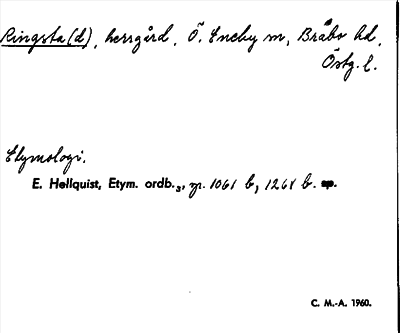 Ringsta(d), herrgård, Ö. Eneby sn, Bråbo hd,
Östg. l.
Etymologi.
E. Hellquist, Etym. ordb.₃, sp. 1061 b, 1268 b.
C. M.-A. 1960.